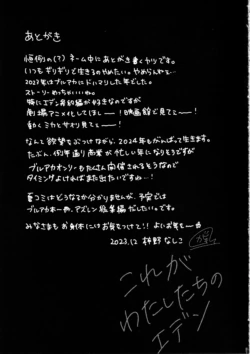 あとがき
恒例の(?)ネーム中にあとがき書くヤツです。
いつもギリギリで生きるのやめたい。やめらんねぇ…
2023年はブルアカにドハマりした年でした。
ストーリーめっちゃいいね。
特にエデン条約編が好きなのですが
劇場アニメ化してほしー!映画館で見てぇー!
動くミカとサオリ見てぇー!
なんて欲望をぶつけながら、2024年もがんばって生きます。
たぶん、例年通り商業が忙しい年になりそうですが
ブルアカオンリーもたくさん開催されるそうなので
タイミングよければまた出たいですね…!
夏コミはどうなるか分かりませんが、予定では
ブルアカ本一冊、アズレン総集編だしたいです。
みなさまもお身体にはお気をつけて!!よいお年をー
2023.12
これが
わたしたちの
エデン